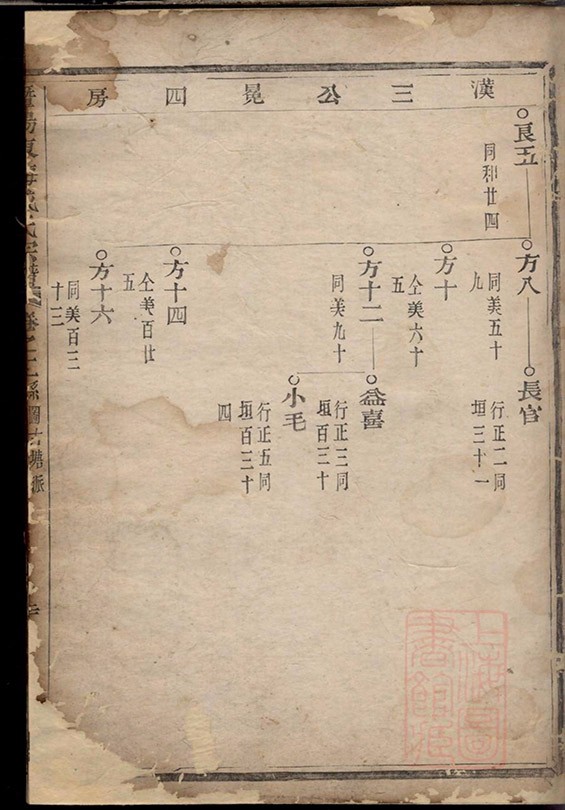 漢三公晃四房
良五
同和廿四
方八
同美五十
九
長官
行正二同
垣三十一
方十
仝美六十
五
方十二
同美九十
益喜
行正三同
垣百三十
小毛
行正五同
垣百三十
四
方十四
仝美百廿
五
方十六
同美百三
十三
暨陽
氏宗譜
卷之
系圖
派